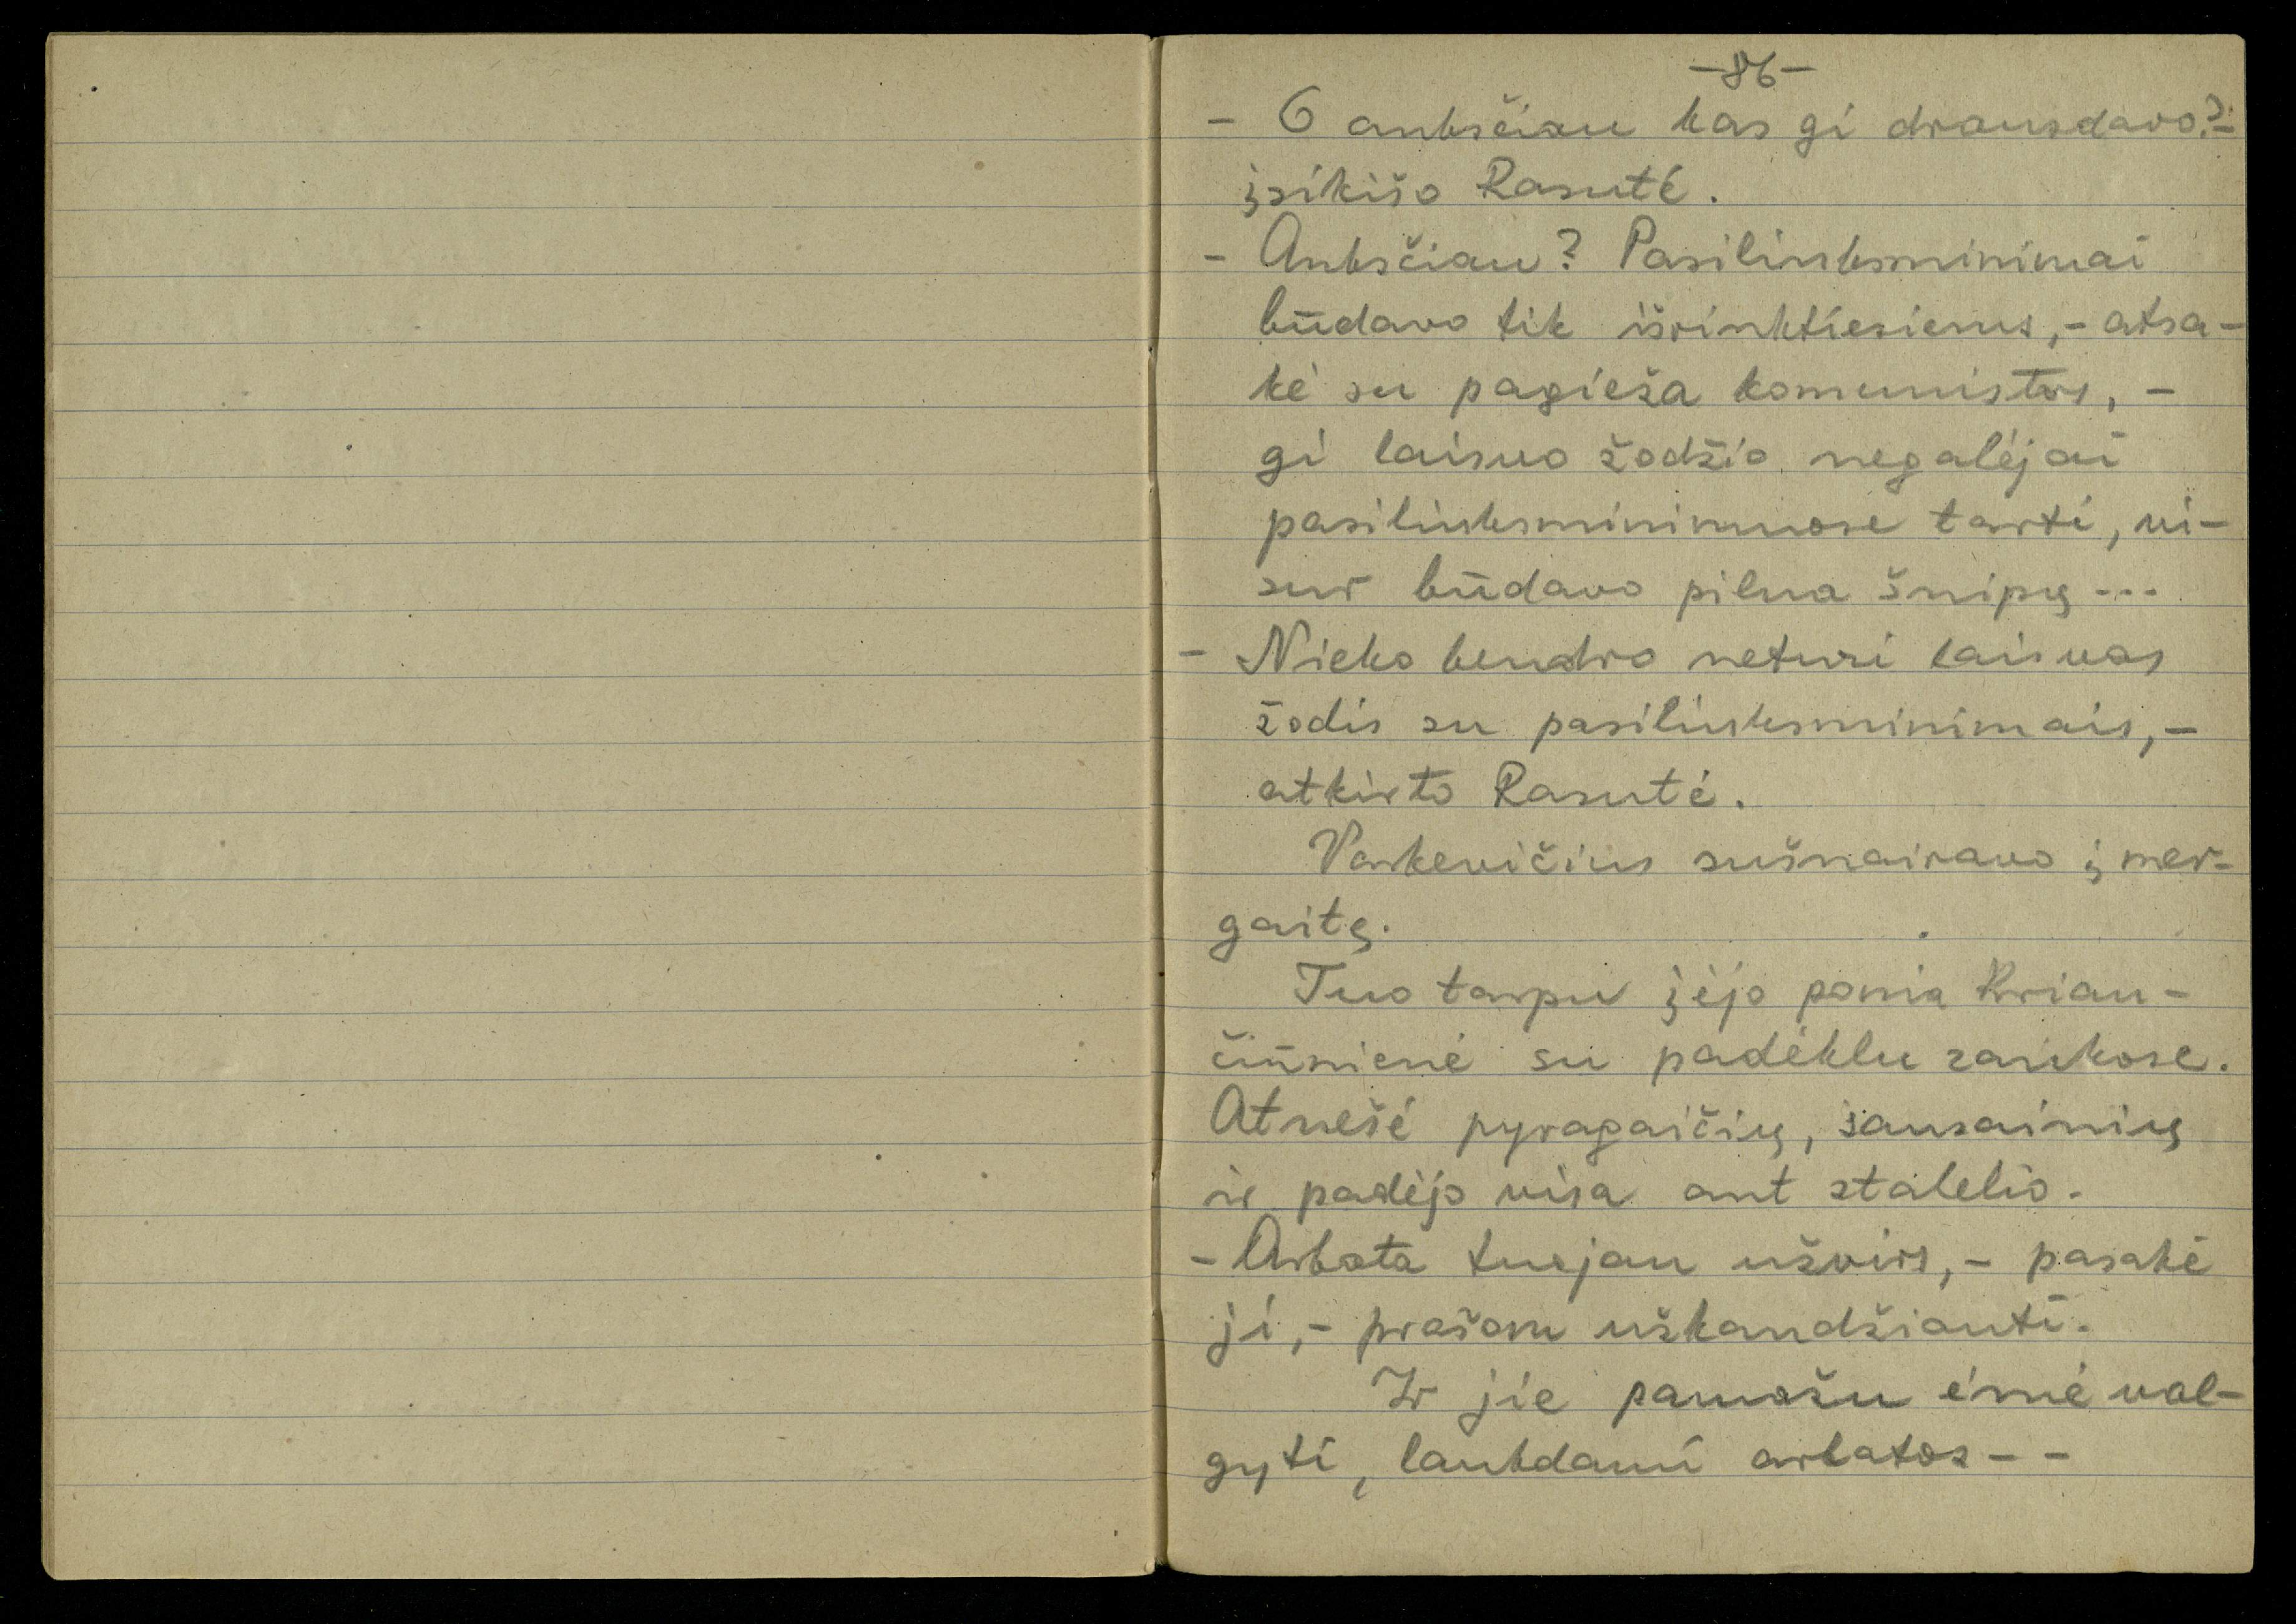 -86-
- O anksčiau kas gi drausdavo?-
įsikišo Rasutė.
- Anksčiau? Pasilinksminimai
būdavo tik išrinktiesiems,- atsa-
kė su pagieža komunistas, -
gi laisvo žodžio negalėjai
pasilinksminimuose tarti, vi-
sur būdavo pilna šnipų...
- Nieko bendro neturi laisvas
žodis su pasilinksminimais,-
atkirto Rasutė.
Varkevičius sušnairavo į mer-
gaitę.
Tuo tarpu įėjo ponia Kriau-
čiūnienė su padėklu rankose.
Atnešė pyragaičių, sausainių
ir padėjo visa ant stalelio.
- Arbata tuojau užvirs,- pasakė
ji,- prašom užkandžiauti.
Ir jie pamažu ėmė val-
gyti, laukdami arbatos - -